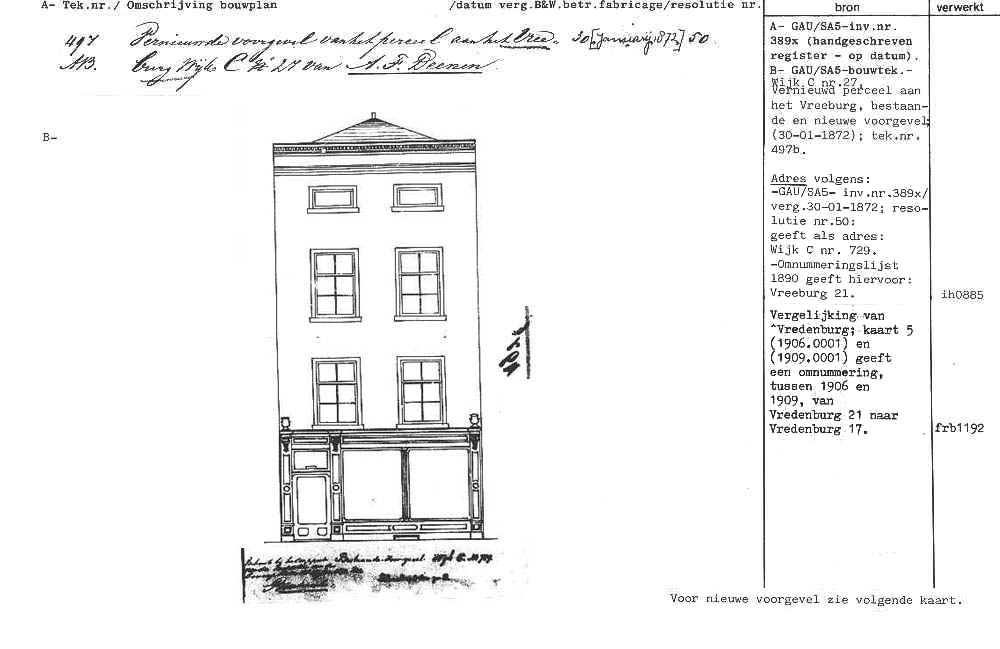 A- Tek.nr./ Omschrijving bouwplan /datum verg.B&W.betr.fabricage/resolutie nr.
bron
verwerkt
497 Vernieuwde voorgevel van het perceel aan het Vree- 30 [January 1872] 50.
AB. burg Wijk C No 27 van A. F. Deenen.
B-
A- GAU/SA5-inv.nr.
389x (handgeschreven
register - op datum).
B- GAU/SA5-bouwtek.-
Wijk C nr.27.
Vernieuwd perceel aan
het Vreeburg, bestaan-
de en nieuwe voorgevel;
(30-01-1872); tek.nr.
497b.
Adres volgens:
-GAU/SA5- inv.nr.389x/
verg.30-01-1872; reso-
lutie nr.50:
geeft als adres:
Wijk C nr. 729.
-Omnummeringslijst
1890 geeft hiervoor:
Vreeburg 21.
ih0885
Vergelijking van
^Vredenburg; kaart 5
(1906.0001) en
(1909.0001) geeft
een omnummering,
tussen 1906 en
1909, van
Vredenburg 21 naar
Vredenburg 17.
frb1192
Bestaande Voorgevel Wijk C.
Voor nieuwe voorgevel zie volgende kaart.